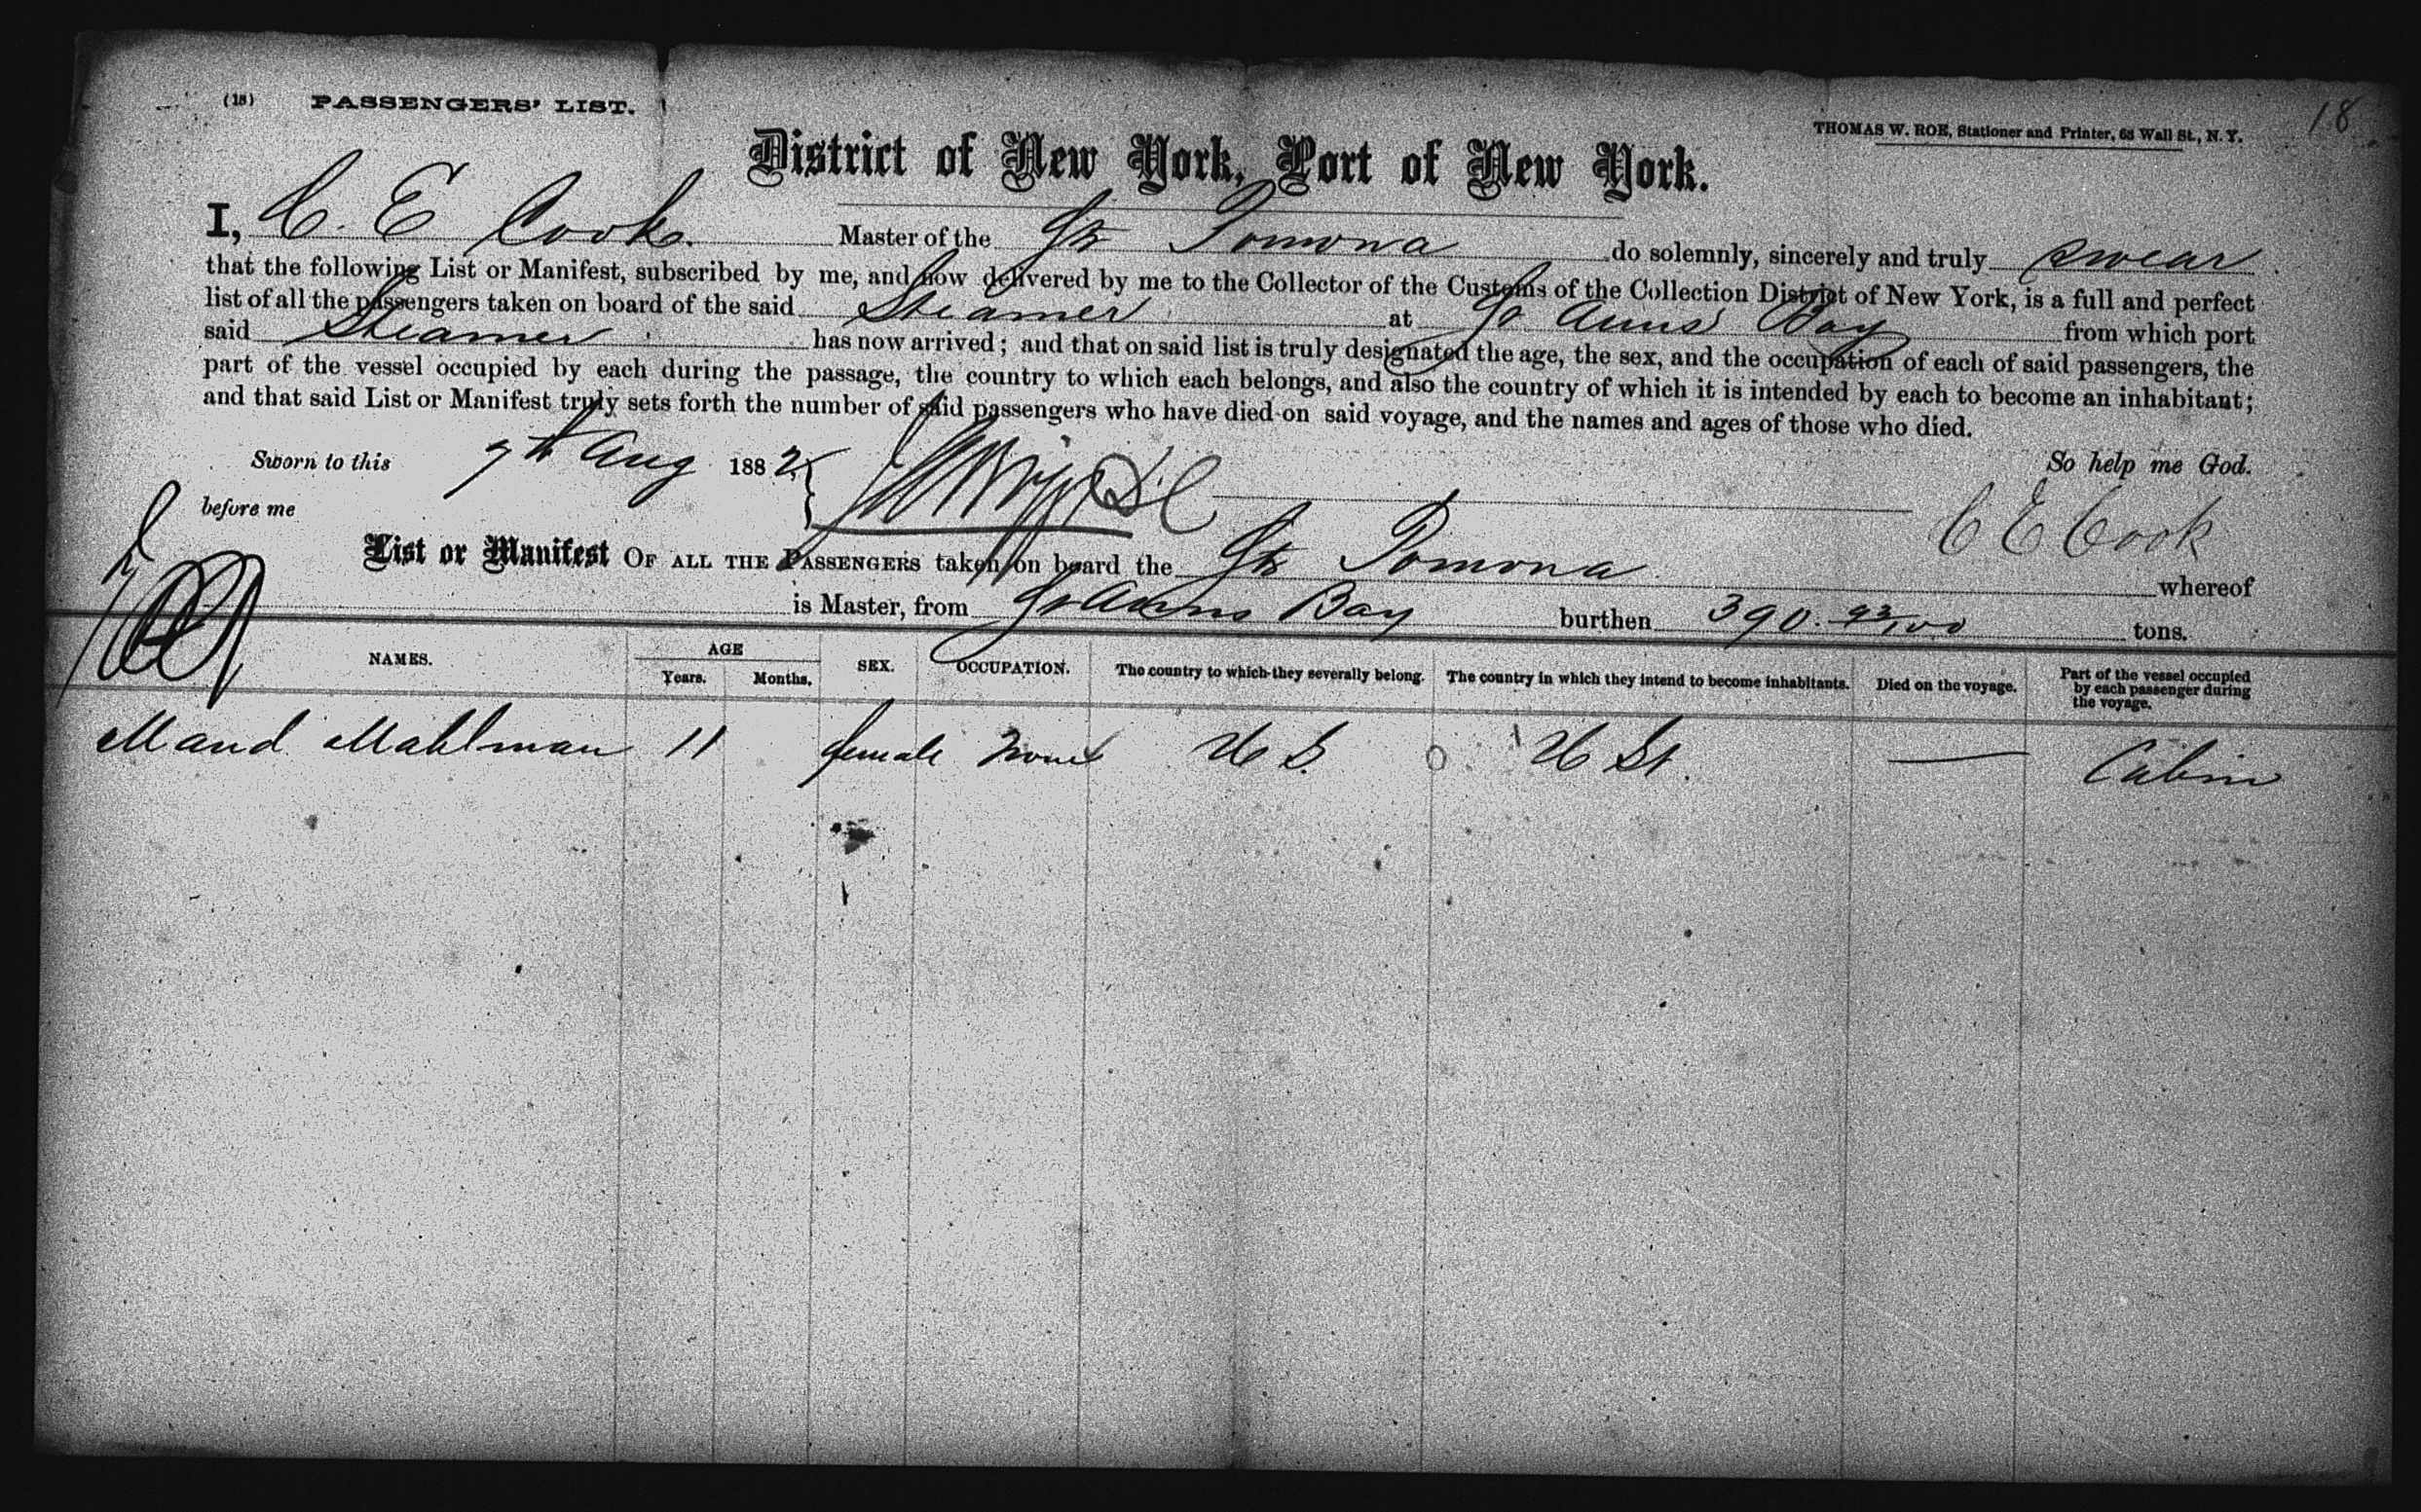 (18) PASSENGERS' LIST.
THOMAS W. ROE, Stationer and Printer, 63 Wall St., N. Y.
18
District of New York, Port of New York.
I, C. E Cook. Master of the Str Pomona do solemnly, sincerely and truly swear
that the following List or Manifest, subscribed by me, and now delivered by me to the Collector of the Customs of the Collection District of New York, is a full and perfect
list of all the passengers taken on board of the said Steamer at St Anns Bay from which port
said Steamer has now arrived; and that on said list is truly designated the age, the sex, and the occupation of each of said passengers, the
part of the vessel occupied by each during the passage, the country to which each belongs, and also the country of which it is intended by each to become an inhabitant;
and that said List or Manifest truly sets forth the number of said passengers who have died on said voyage, and the names and ages of those who died.
Sworn to this 7th Aug 1882
So help me God.
before me
C E Cook
List or Manifest OF ALL THE PASSENGERS taken on board the Str Pomona whereof
is Master, from St Anns Bay burthen 390. 93/100 tons.
NAMES. AGE Years. Months. SEX. OCCUPATION. The country to which they severally belong. The country in which they intend to become inhabitants. Died on the voyage. Part of the vessel occupied by each passenger during the voyage.
Maud Mahlman 11 female None U S. 0 U St. — Cabin